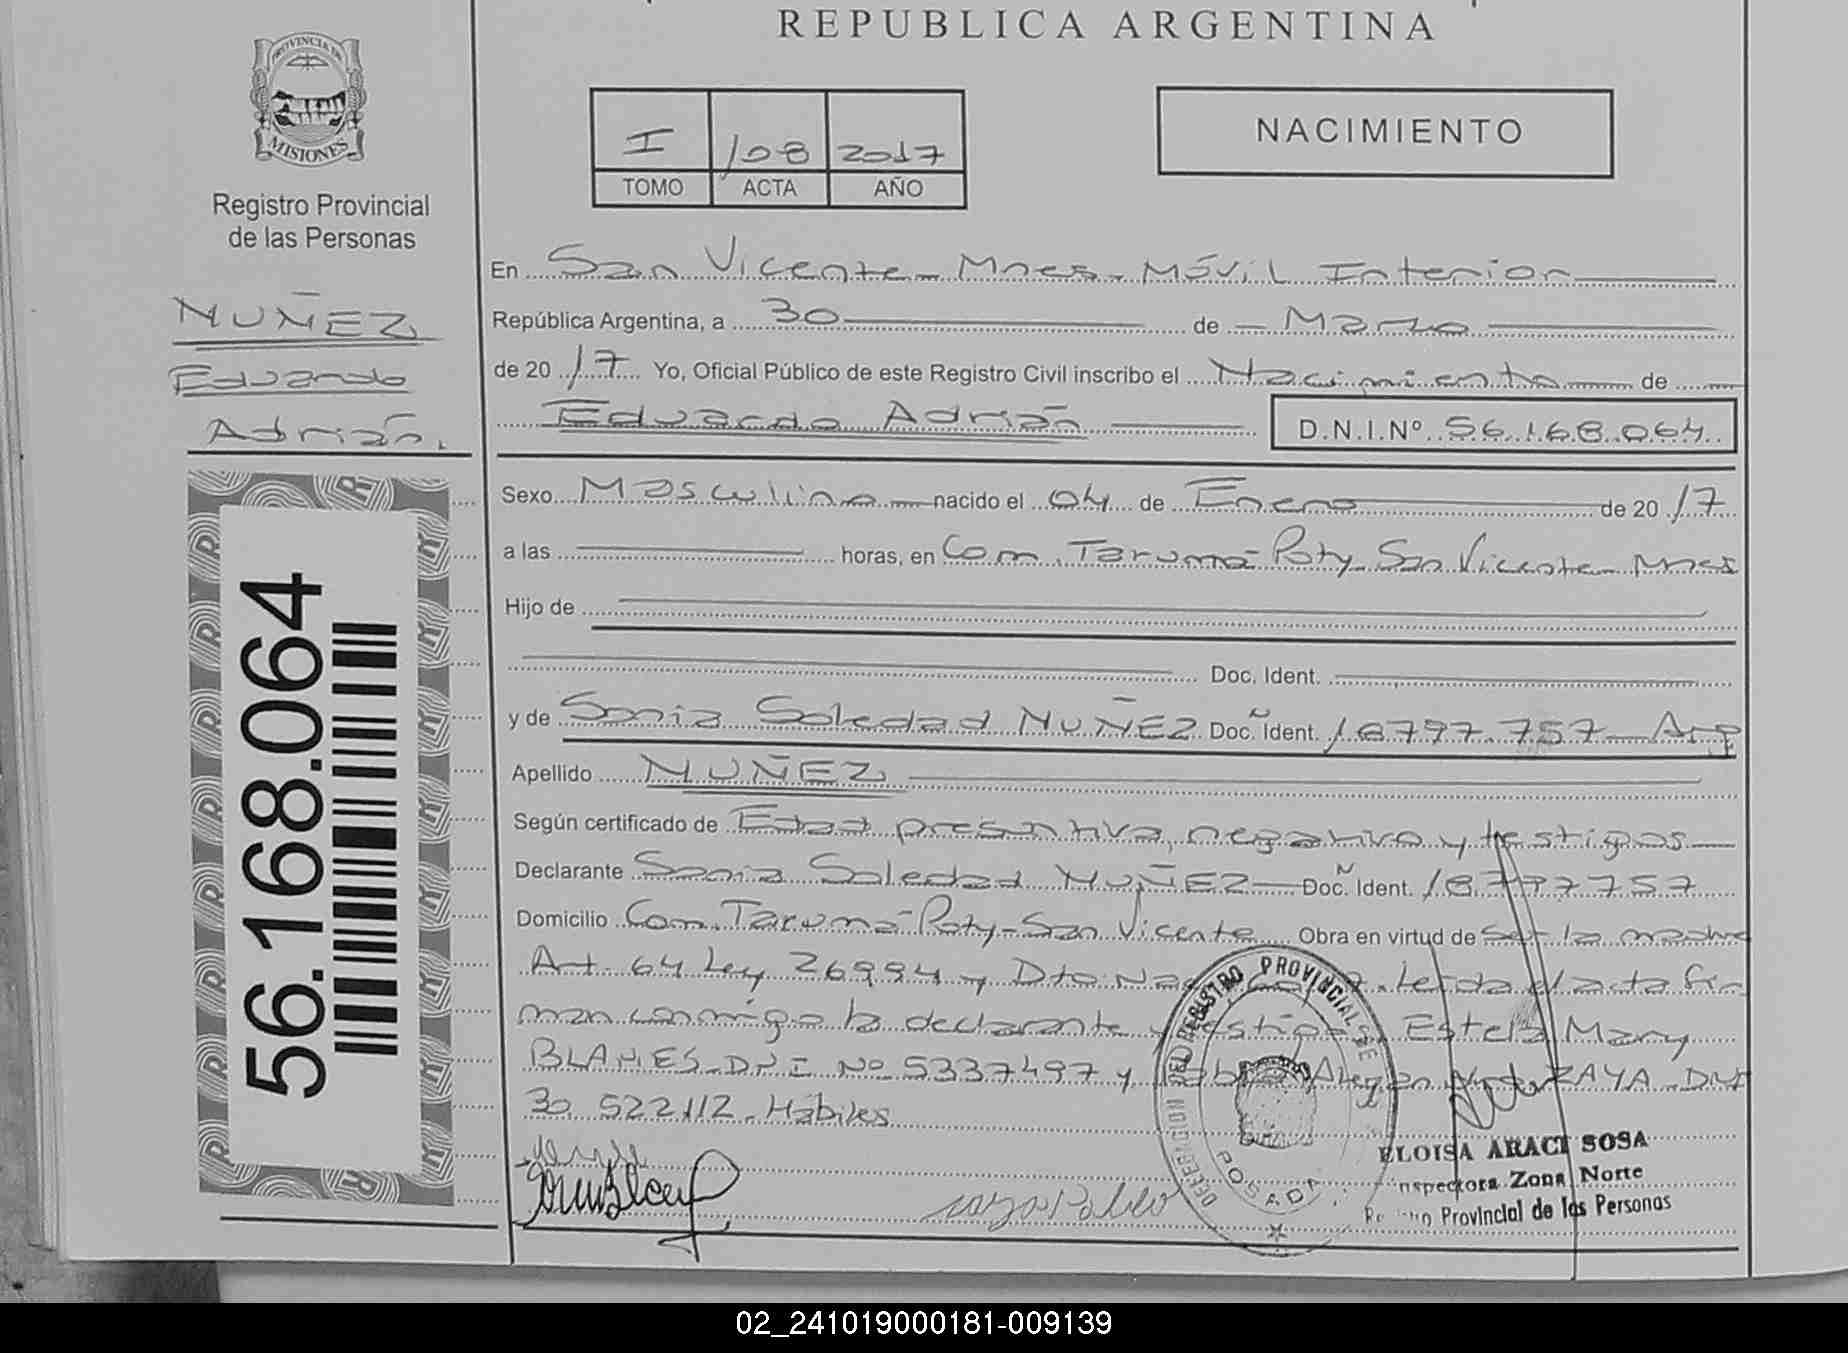 REPUBLICA ARGENTINA
PROVINCIA DE
MISIONES
Registro Provincial
de las Personas
NUÑEZ
Eduardo
Adrián.
56.168.064
I 108 2017
TOMO ACTA AÑO
NACIMIENTO
En San Vicente - Mnes - Móvil Interior
República Argentina, a 30 de - Marzo
de 2017 Yo, Oficial Público de este Registro Civil inscribo el Nacimiento de
Eduardo Adrián D.N.I.Nº 56.168.064
Sexo Masculino nacido el 04 de Enero de 2017
a las horas, en Com. Taruma Poty San Vicente Mnes
Hijo de
Doc. Ident.
y de Sonia Soledad NUÑEZ Doc. Ident. 18797.757 - Arg
Apellido NUÑEZ
Según certificado de Edad presuntiva, negativo y testigos
Declarante Sonia Soledad NUÑEZ Doc. Ident. 18797757
Domicilio Com. Taruma Poty - San Vicente Obra en virtud de Ser la madre
Art. 64 Ley 26994 y Dto Leida el acta fir
man conmigo la declarante y testigos Estela Mary
BLANES DNI Nº 5337497 y ZAYA DNI
30 522112. Hábiles
DELEGACION DEL REGISTRO PROVINCIAL DE
POSADAS
ELOISA ARACI SOSA
Inspectora Zona Norte
Registro Provincial de las Personas
02_241019000181-009139